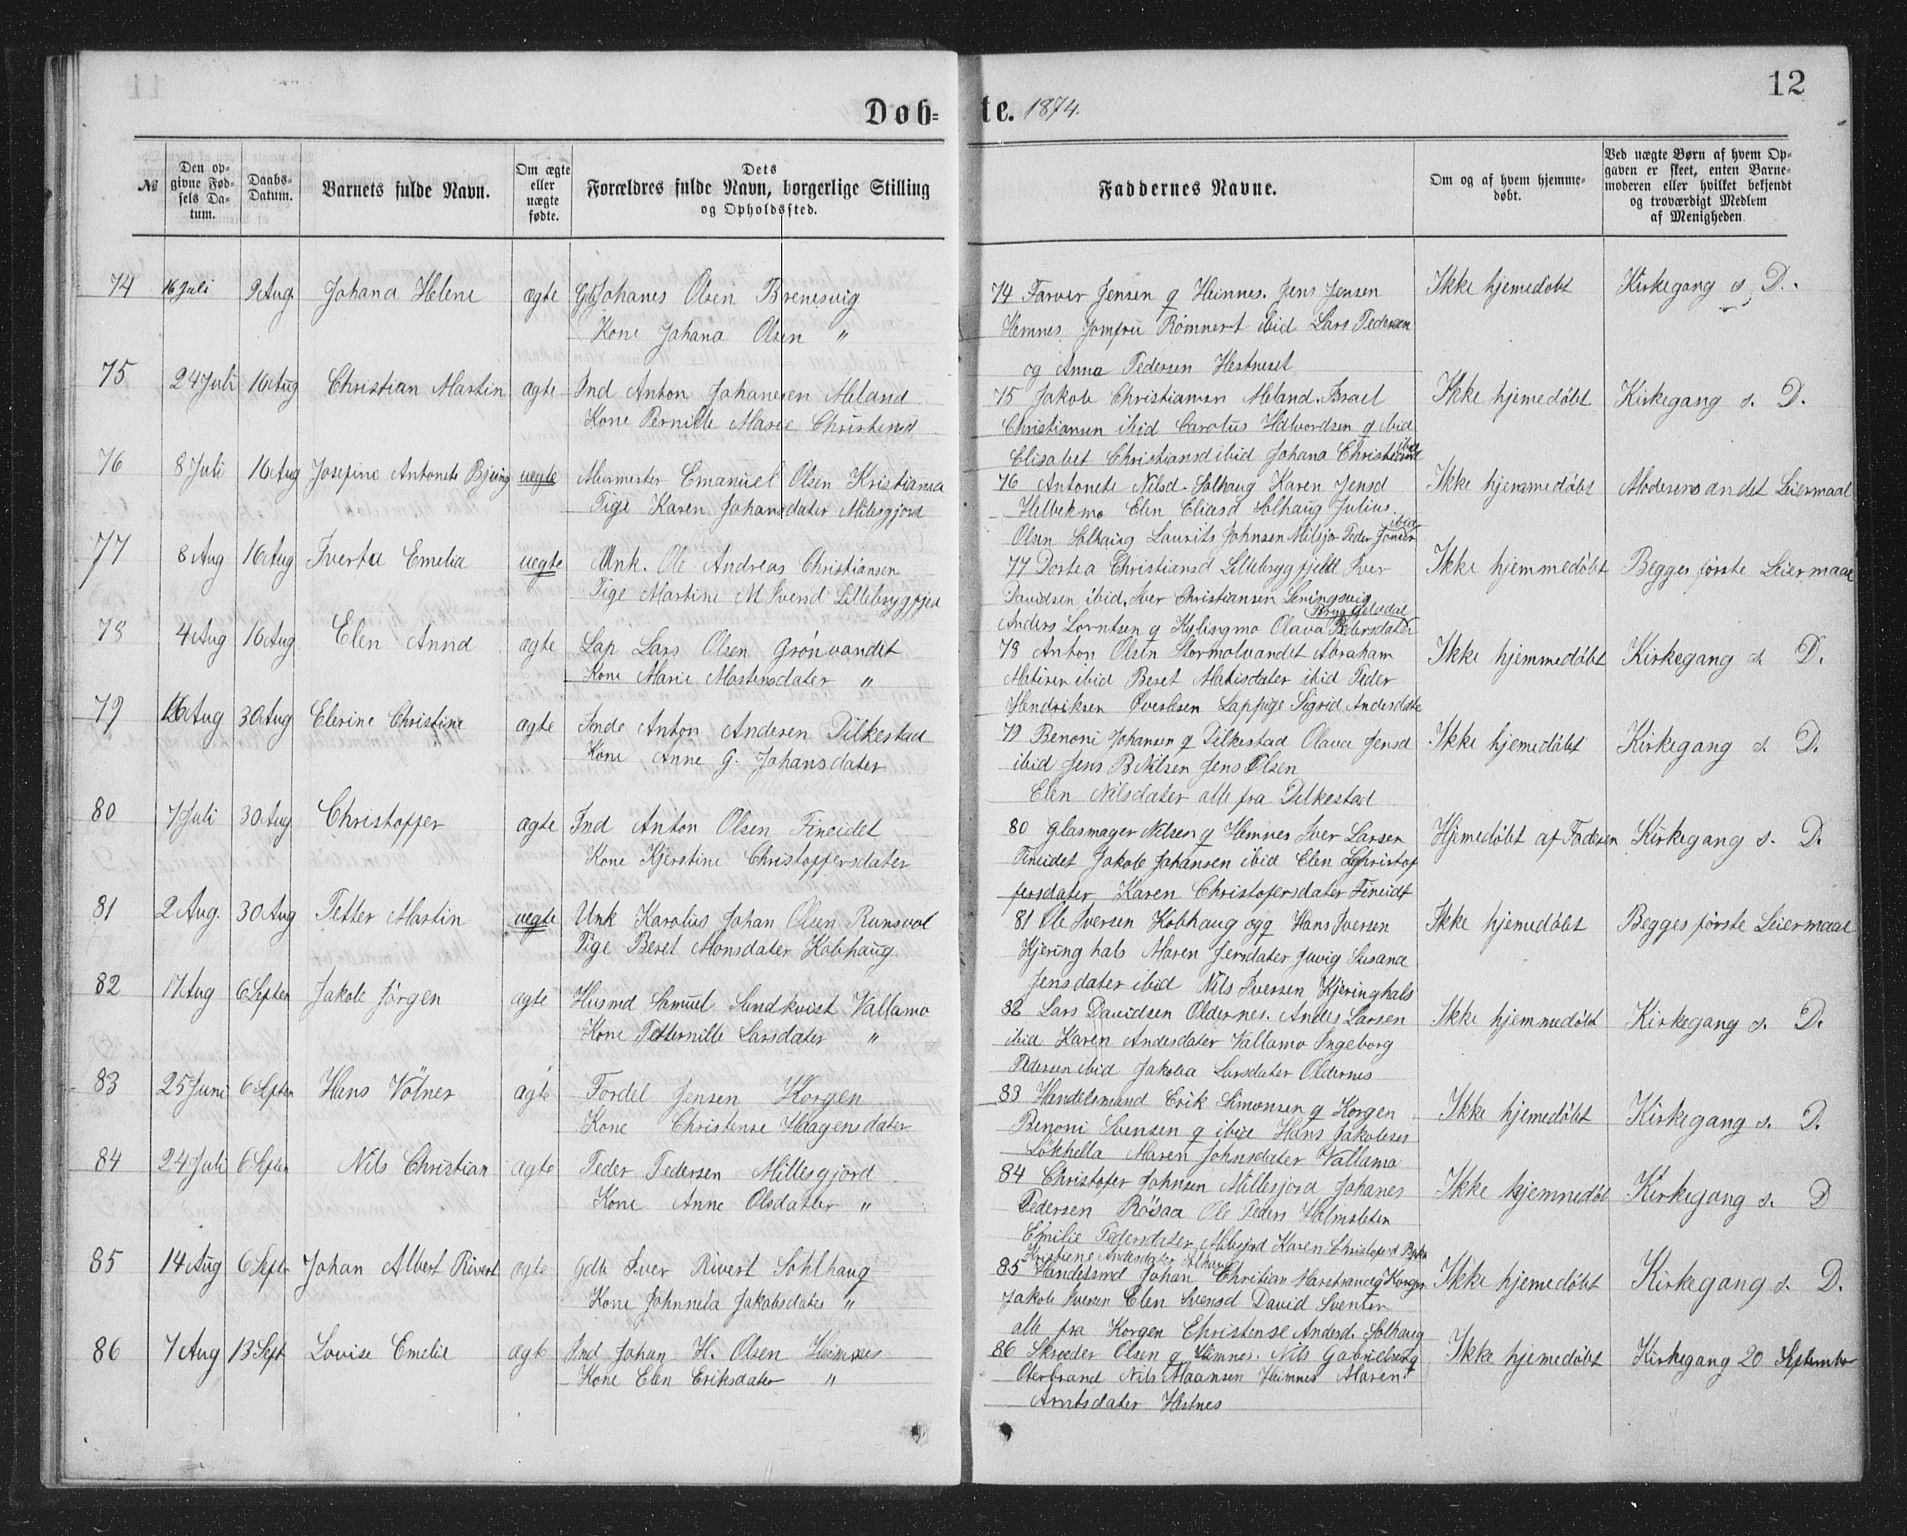 12
Døb=te. 1874.
№
Den opgivne Fødsels Datum.
Daabs-Datum.
Barnets fulde Navn.
Om ægte eller uægte fødte.
Dets Forældres fulde Navn, borgerlige Stilling og Opholdssted.
Faddernes Navne.
Om og af hvem hjemmedøbt.
Ved uægte Børn af hvem Opgaven er skeet, enten Barnemoderen eller hvilket bekjendt og troværdigt Medlem af Menigheden.
74 16 Juli 9 Aug. Johana Helene ægte Gdb Johanes Olsen Brenesvig
Kone Johana Olsen "
74 Farver Jensen q Heimnes. Jens Jensen Ikke hjemedøbt Kirkegang s. D.
Hemnes Jomfru Rømnert ibid Lars Pedersen
og Anna Pedersen Hestneset
75 24 Juli 16 Aug Christian Martin ægte Ind Anton Johanesen Meland
Kone Pernille Marie Christensd
75 Jakob Christiansen Meland. Israel Ikke hjemedøbt Kirkegang s. D.
Christiansen ibid Carolus Halvordsen q ibid
Elisabet Christiansd ibid Johana Christiansd ibid
76 8 Juli 16 Aug Josefine Antonete Bjung uægte Murmester Emanuel Olsen Kristiania
Pige Karen Johansdater Milesgjord
76 Antonete Nilsd. Solhaug Karen Jensd Ikke hjemmedøbt Moderens andet Leiermaal
Helbekmo Elen Eliasd Solhaug Julius
Olsen Solhaug Laurits Johnsen Milsjor Peder Jonsen ibid
77 8 Aug 16 Aug Iverta Emelia uægte Unk. Ole Andreas Christiansen
Pige Martine M Svend Lillebrygfjed
77 Dortea Christiansd Lillebrygfjelt Iver Ikke hjemmedøbt Begges første Leiermaal
Davidsen ibid, Iver Christiansen Leningsvig
Anders Lorntsen q Kylingmo Olava Petersdater
78 4 Aug 16 Aug Elen Annd ægte Lap Lars Olsen Grønvandet
Kone Marie Mortensdater "
78 Anton Olsen Stormolvandet Abraham Ikke hjemmedøbt Kirkegang s. D.
Matisen ibid Beret Matisdater ibid Peder
Hendriksen Øverlesen Lappige Sigrid Andersdate
79 16 Aug 30 Aug Elerine Christine ægte Inde Anton Andersen Dilkestad
Kone Anne G. Johansdater
79 Benoni Johansen q Dilkestad Olava Jensd Ikke hjemedøbt Kirkegang s. D.
ibid Jens B Nilsen Jens Olsen
Elen Nilsdater alle fra Dilkestad
80 7 Juli 30 Aug Christoffer ægte Ind Anton Olsen Fineidet
Kone Kjerstine Christoffersdater
80 Glasmager Nilsen q Hemnes Iver Larsen Hjemedøbt af Faderen Kirkegang s. D.
Fineidet Jakob Johansen ibid Elen Christof
fersdater Karen Christofersdater Fineidt
81 2 Aug. 30 Aug Petter Martin uægte Unk Karolus Johan Olsen Runsvol
Pige Beret Monsdater Kobhaug
81 Ole Iversen Kobhaug ogq Hans Iversen Ikke hjemedøbt Begges første Leiermaal
Kjeringhals Maren Jersdater Juvig Susana
Jensdater ibid Nils Iversen Kjeringhals
82 17 Aug 6 Septen Jakob Jørgen ægte Husmd Samuel Sundkvist Vallamo
Kone Petternille Larsdater "
82 Lars Davidsen Oldernes. Anders Larsen Ikke hjemmedøbt Kirkegang s. D.
ibid Karen Andesdater Vallamo Ingeborg
Pedersen ibid Jakobia Larsdater Oldernes
83 25 Juni 6 Septen Hans Volner ægte Fordel Jensen Korgen
Kone Christense Haagensdater
83 Handelsmand Erik Simonsen q Korgen Ikke hjemedøbt Kirkegang s. D.
Benoni Svensen q ibid Hans Jakobsen
Løkhella Maren Johnsdater Vallamo
84 24 Juli 6 Septen Nils Christian ægte Peder Pedersen Millesgjord
Kone Anne Olsdatter "
84 Christofer Johnsen Millesjord Johanes Ikke hjemmedøbt Kirkegang s. D
Pedersen Røsaa Ole Peders Halmsleten
Emilie Pedersdater Milesjord Karen Christoferd
85 14 Aug 6 Septen Johan Albert Rivert ægte Gdb Iver Rivert Sohlhaug
Kone Johnneta Jakobsdater "
Kristiene Andersdater Solhaug
85 Handelsmd Johan Christian Harstrand q Korgen Ikke hjemedøbt Kirkegang s. D.
Jakob Iversen Elen Svensd David Sventsen
alle fra Korgen Christense Andersd. Solhaug
86 7 Aug 13 Sept Lovise Emelie ægte Ind Johan H. Olsen Heimnes
Kone Elen Eriksdater "
86 Skreder Olsen q Hemnes. Nils Gabrielsen q Ikke hjemedøbt Kirkegang 20 September
Oterbrand Nils Maansen Heimnes Maren
Arntsdater Hestnes